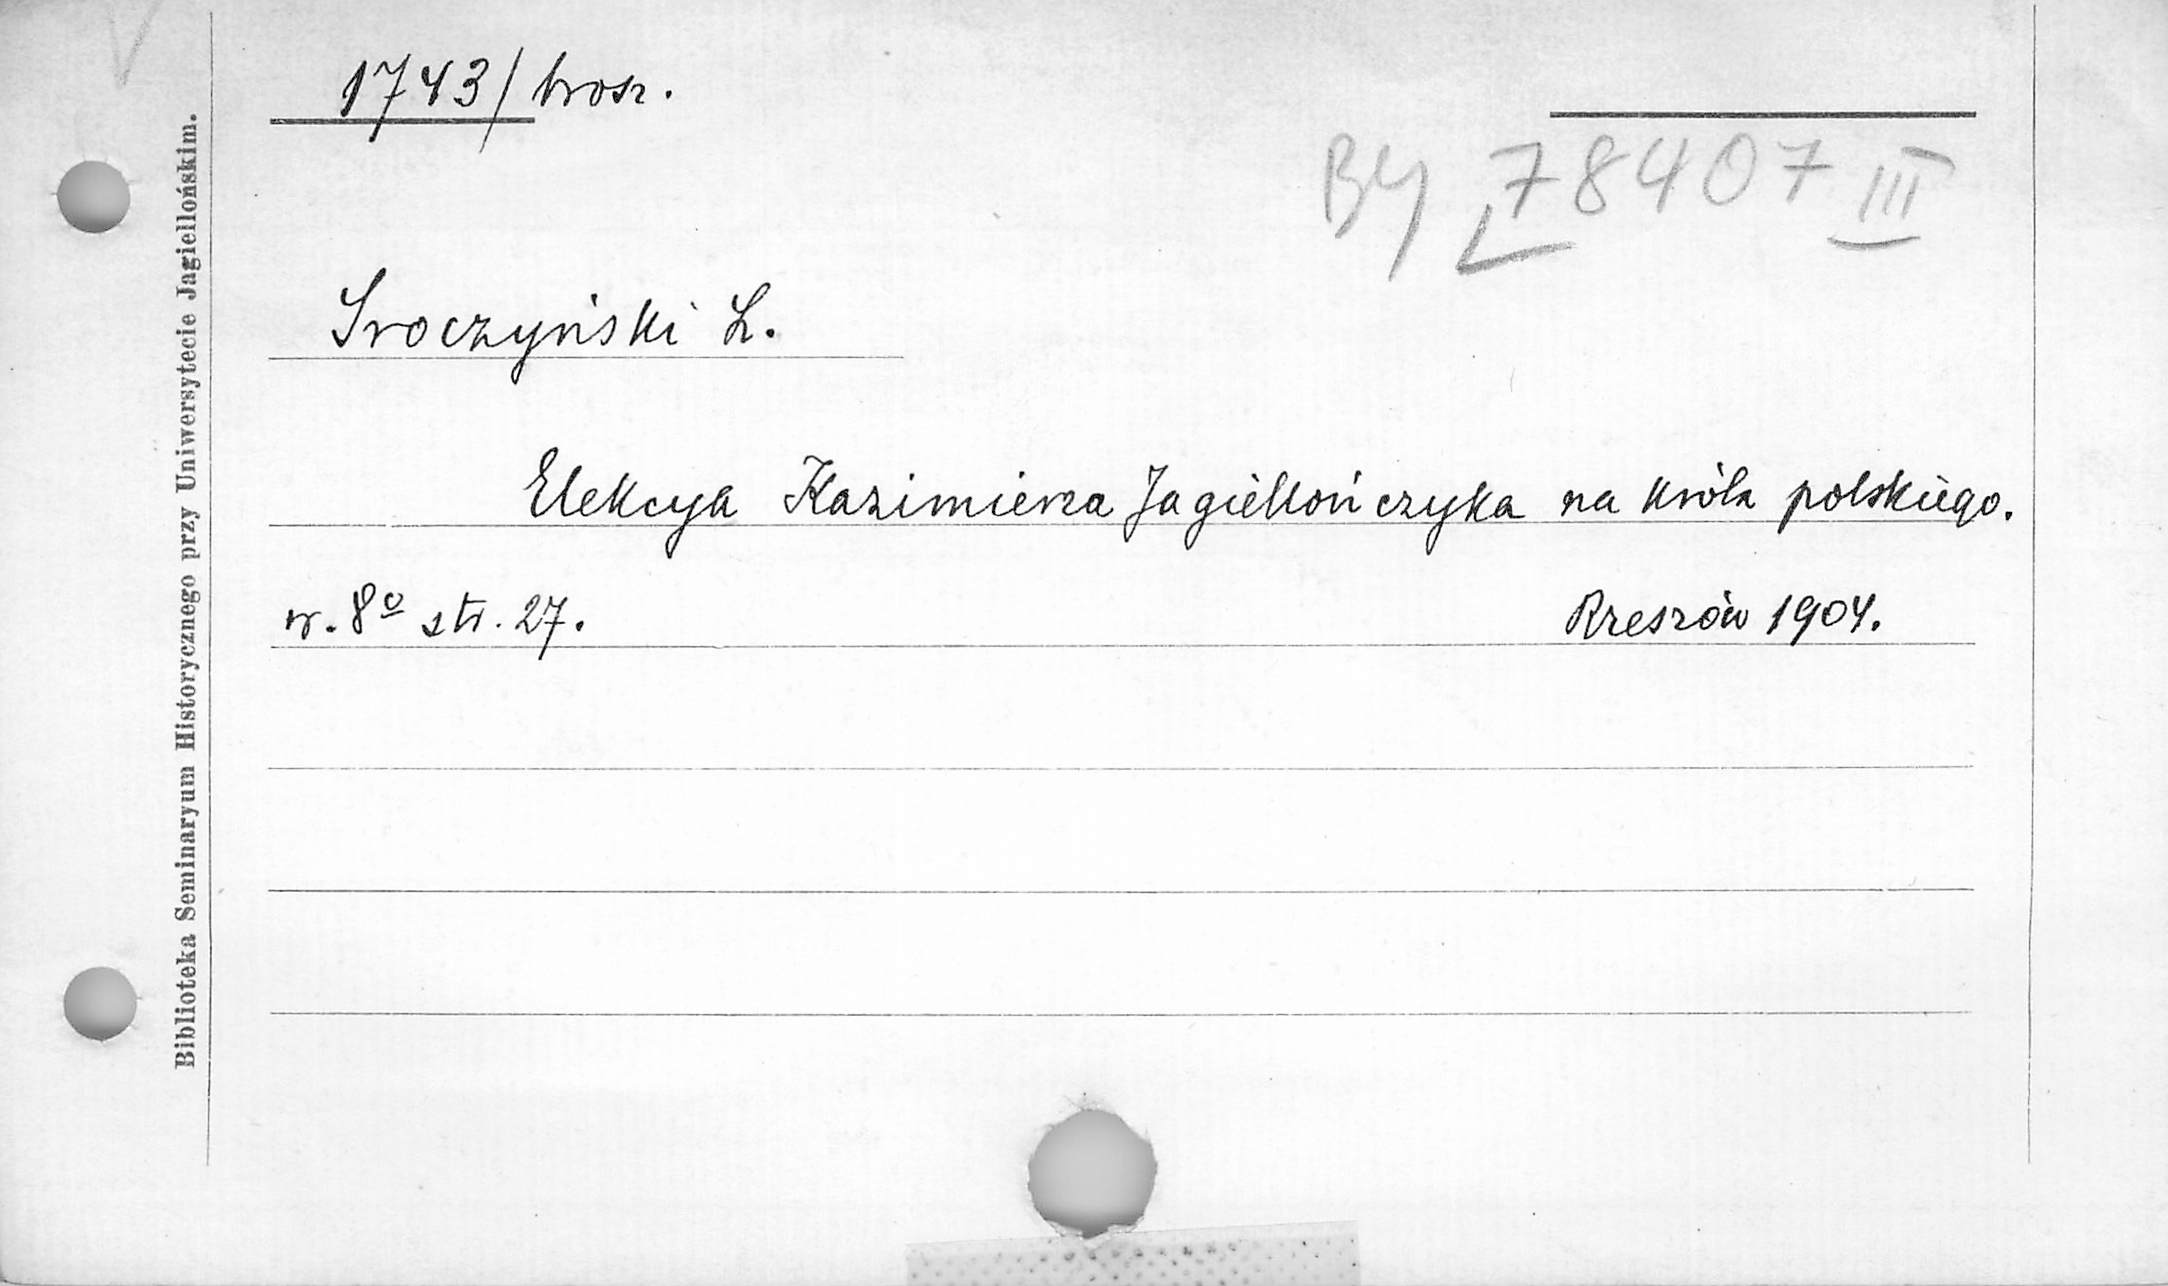 1743/brosz.
By 78407 III
Sroczyński L.
Elekcya Kazimierza Jagiellończyka na króla polskiego.
w. 8º str. 27. Rzeszów 1904.
Biblioteka Seminaryum Historycznego przy Uniwersytecie Jagiellońskim.